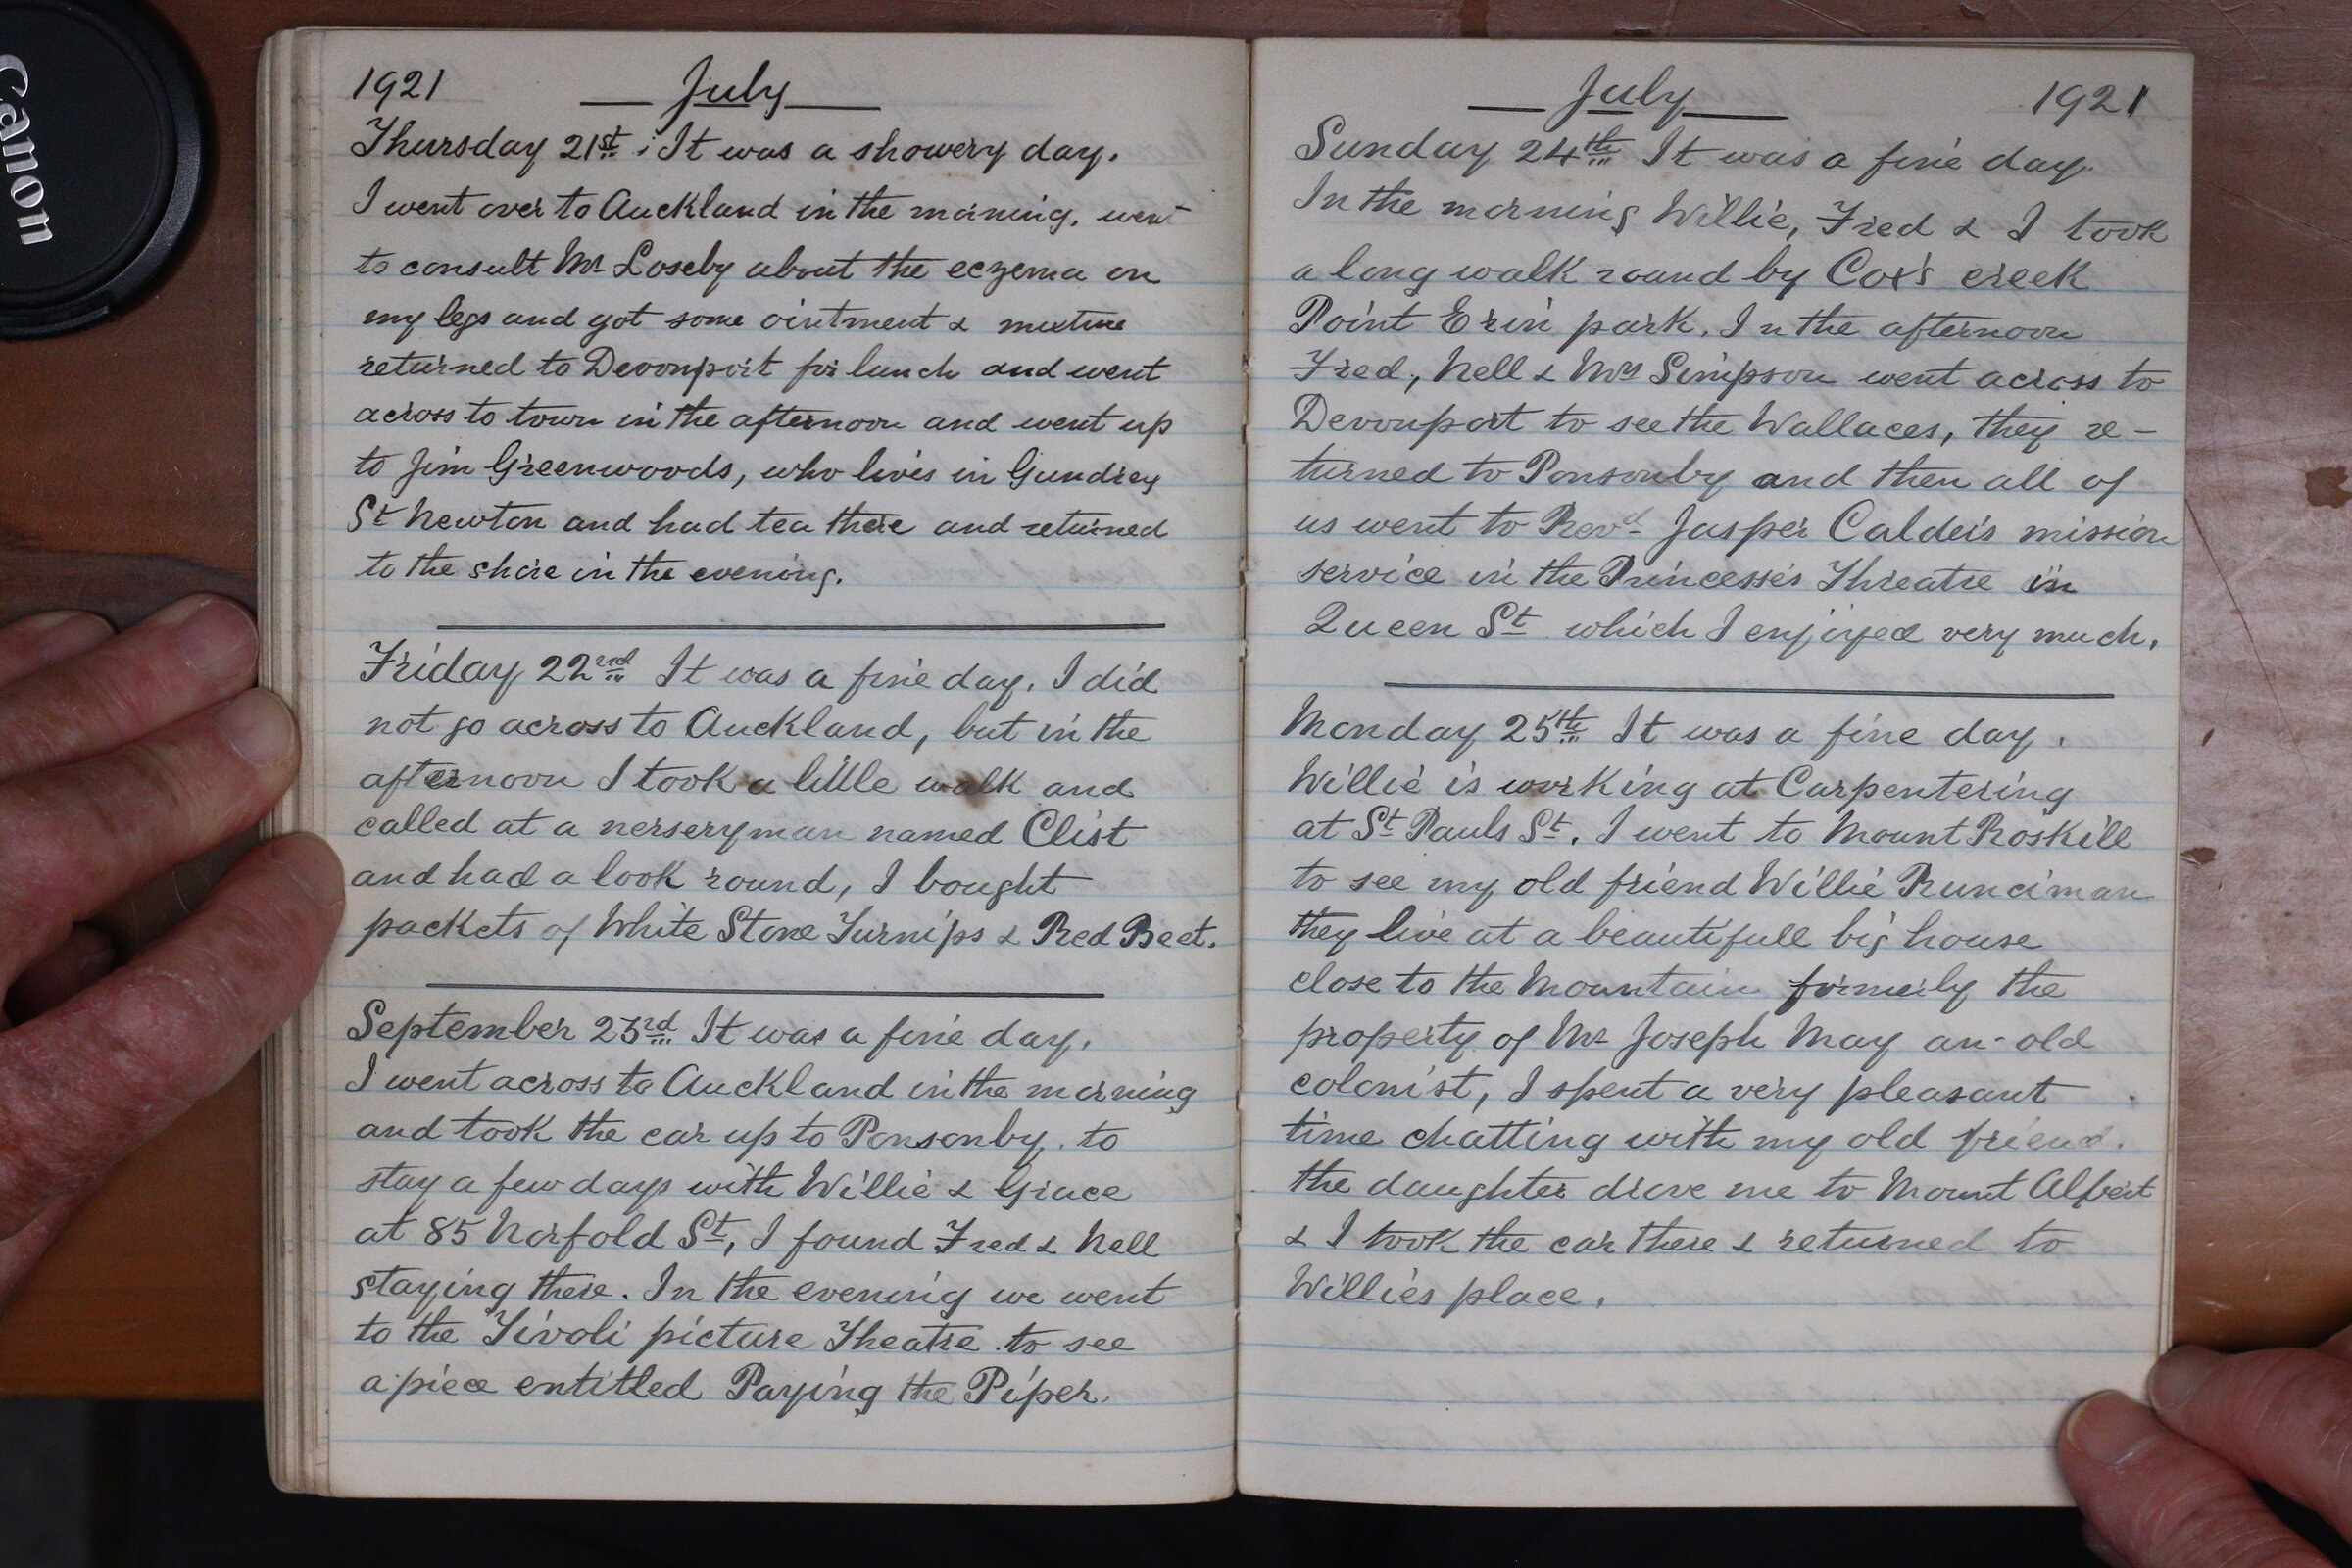 Canon
1921 July
Thursday 21st : It was a showery day.
I went over to Auckland in the morning, went
to consult Mr Loseby about the eczema on
my legs and got some ointment & mixture
returned to Devonport for lunch and went
across to town in the afternoon and went up
to Jim Greenwoods, who lives in Gundrey
St Newton and had tea there and returned
to the shore in the evening.
Friday 22nd It was a fine day. I did
not go across to Auckland, but in the
afternoon I took a little walk and
called at a nerseryman named Clist
and had a look round, I bought
packets of White Stone Turnips & Red Beet.
September 23rd It was a fine day.
I went across to Auckland in the morning
and took the car up to Ponsonby. to
stay a few days with Willie & Grace
at 85 Norfold St, I found Fred & Nell
staying there. In the evening we went
to the Tivoli picture Theatre to see
a piece entitled Paying the Piper.
July 1921
Sunday 24th It was a fine day.
In the morning Willie, Fred & I took
a long walk round by Cox's creek
Point Erin park. In the afternoon
Fred, Nell & Mrs Simpson went across to
Devonport to see the Wallaces, they re-
turned to Ponsonby and then all of
us went to Revd Jasper Calders mission
service in the Princesses Threatre in
Queen St which I enjoyed very much.
Monday 25th It was a fine day.
Willie is working at Carpentering
at St Pauls St. I went to Mount Roskill
to see my old friend Willie Runciman
they live at a beautifull big house
close to the Mountain formerly the
property of Mr Joseph May an old
colonist, I spent a very pleasant
time chatting with my old friend.
the daughter drove me to Mount Albert
& I took the car there & returned to
Willies place.